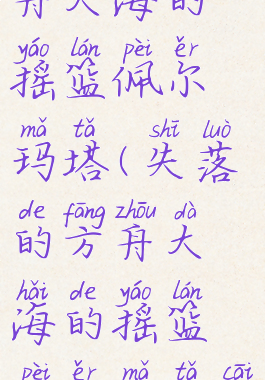 舟大海的
yáo lán pèi ěr
摇篮佩尔
mǎ tǎ shī luò
玛塔(失落
de fāng zhōu dà
的方舟大
hǎi de yáo lán
海的摇篮
pèi ěr mǎ tǎ cāi